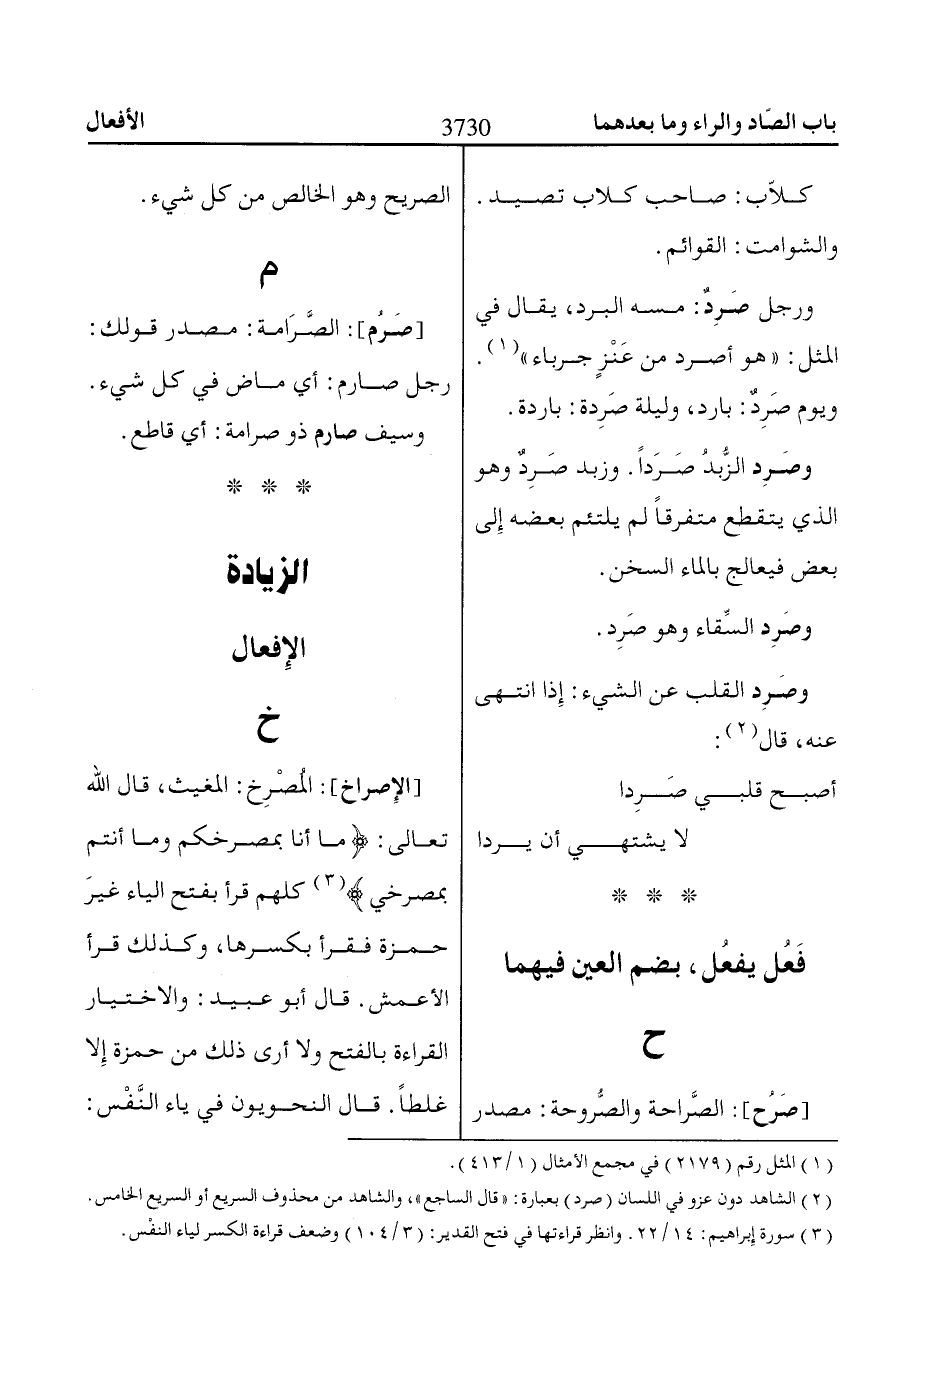 باب الصّاد والراء وما بعدهما
3730
الأفعال
كلاّب: صاحب كلاب تصيد.
والشوامت: القوائم.
ورجل صَرِدٌ: مسه البرد، يقال في
المثل: «هو أصرد من عَنْزٍ جرباء»(١).
ويوم صَرِدٌ: بارد، وليلة صَرِدة: باردة.
وصَرِد الزُّبدُ صَرَداً. وزبد صَرِدٌ وهو
الذي يتقطع متفرقاً لم يلتئم بعضه إلى
بعض فيعالج بالماء السخن.
وصَرِد السِّقاء وهو صَرِد.
وصَرِد القلب عن الشيء: إذا انتهى
عنه، قال(٢):
أصبح قلبي صَرِدا
لا يشتهي أن يردا
* * *
فَعُل يفعُل، بضم العين فيهما
ح
[صَرُح]: الصَّراحة والصُّروحة: مصدر
الصريح وهو الخالص من كل شيء.
م
[صَرُم]: الصَّرَامة: مصدر قولك:
رجل صارم: أي ماض في كل شيء.
وسيف صارم ذو صرامة: أي قاطع.
* * *
الزيادة
الإِفعال
خ
[الإِصراخ]: المُصْرِخ: المغيث، قال الله
تعالى: ﴿ما أنا بمصرخكم وما أنتم
بمصرخي﴾(٣) كلهم قرأ بفتح الياء غيرَ
حمزة فقرأ بكسرها، وكذلك قرأ
الأعمش. قال أبو عبيد: والاختيار
القراءة بالفتح ولا أرى ذلك من حمزة إلا
غلطاً. قال النحويون في ياء النَّفْس:
(١) المثل رقم (٢١٧٩) في مجمع الأمثال (٤١٣/١).
(٢) الشاهد دون عزو في اللسان (صرد) بعبارة: «قال الساجع»، والشاهد من محذوف السريع أو السريع الخامس.
(٣) سورة إبراهيم: ٢٢/١٤. وانظر قراءتها في فتح القدير: (١٠٤/٣) وضعف قراءة الكسر لياء النفْس.